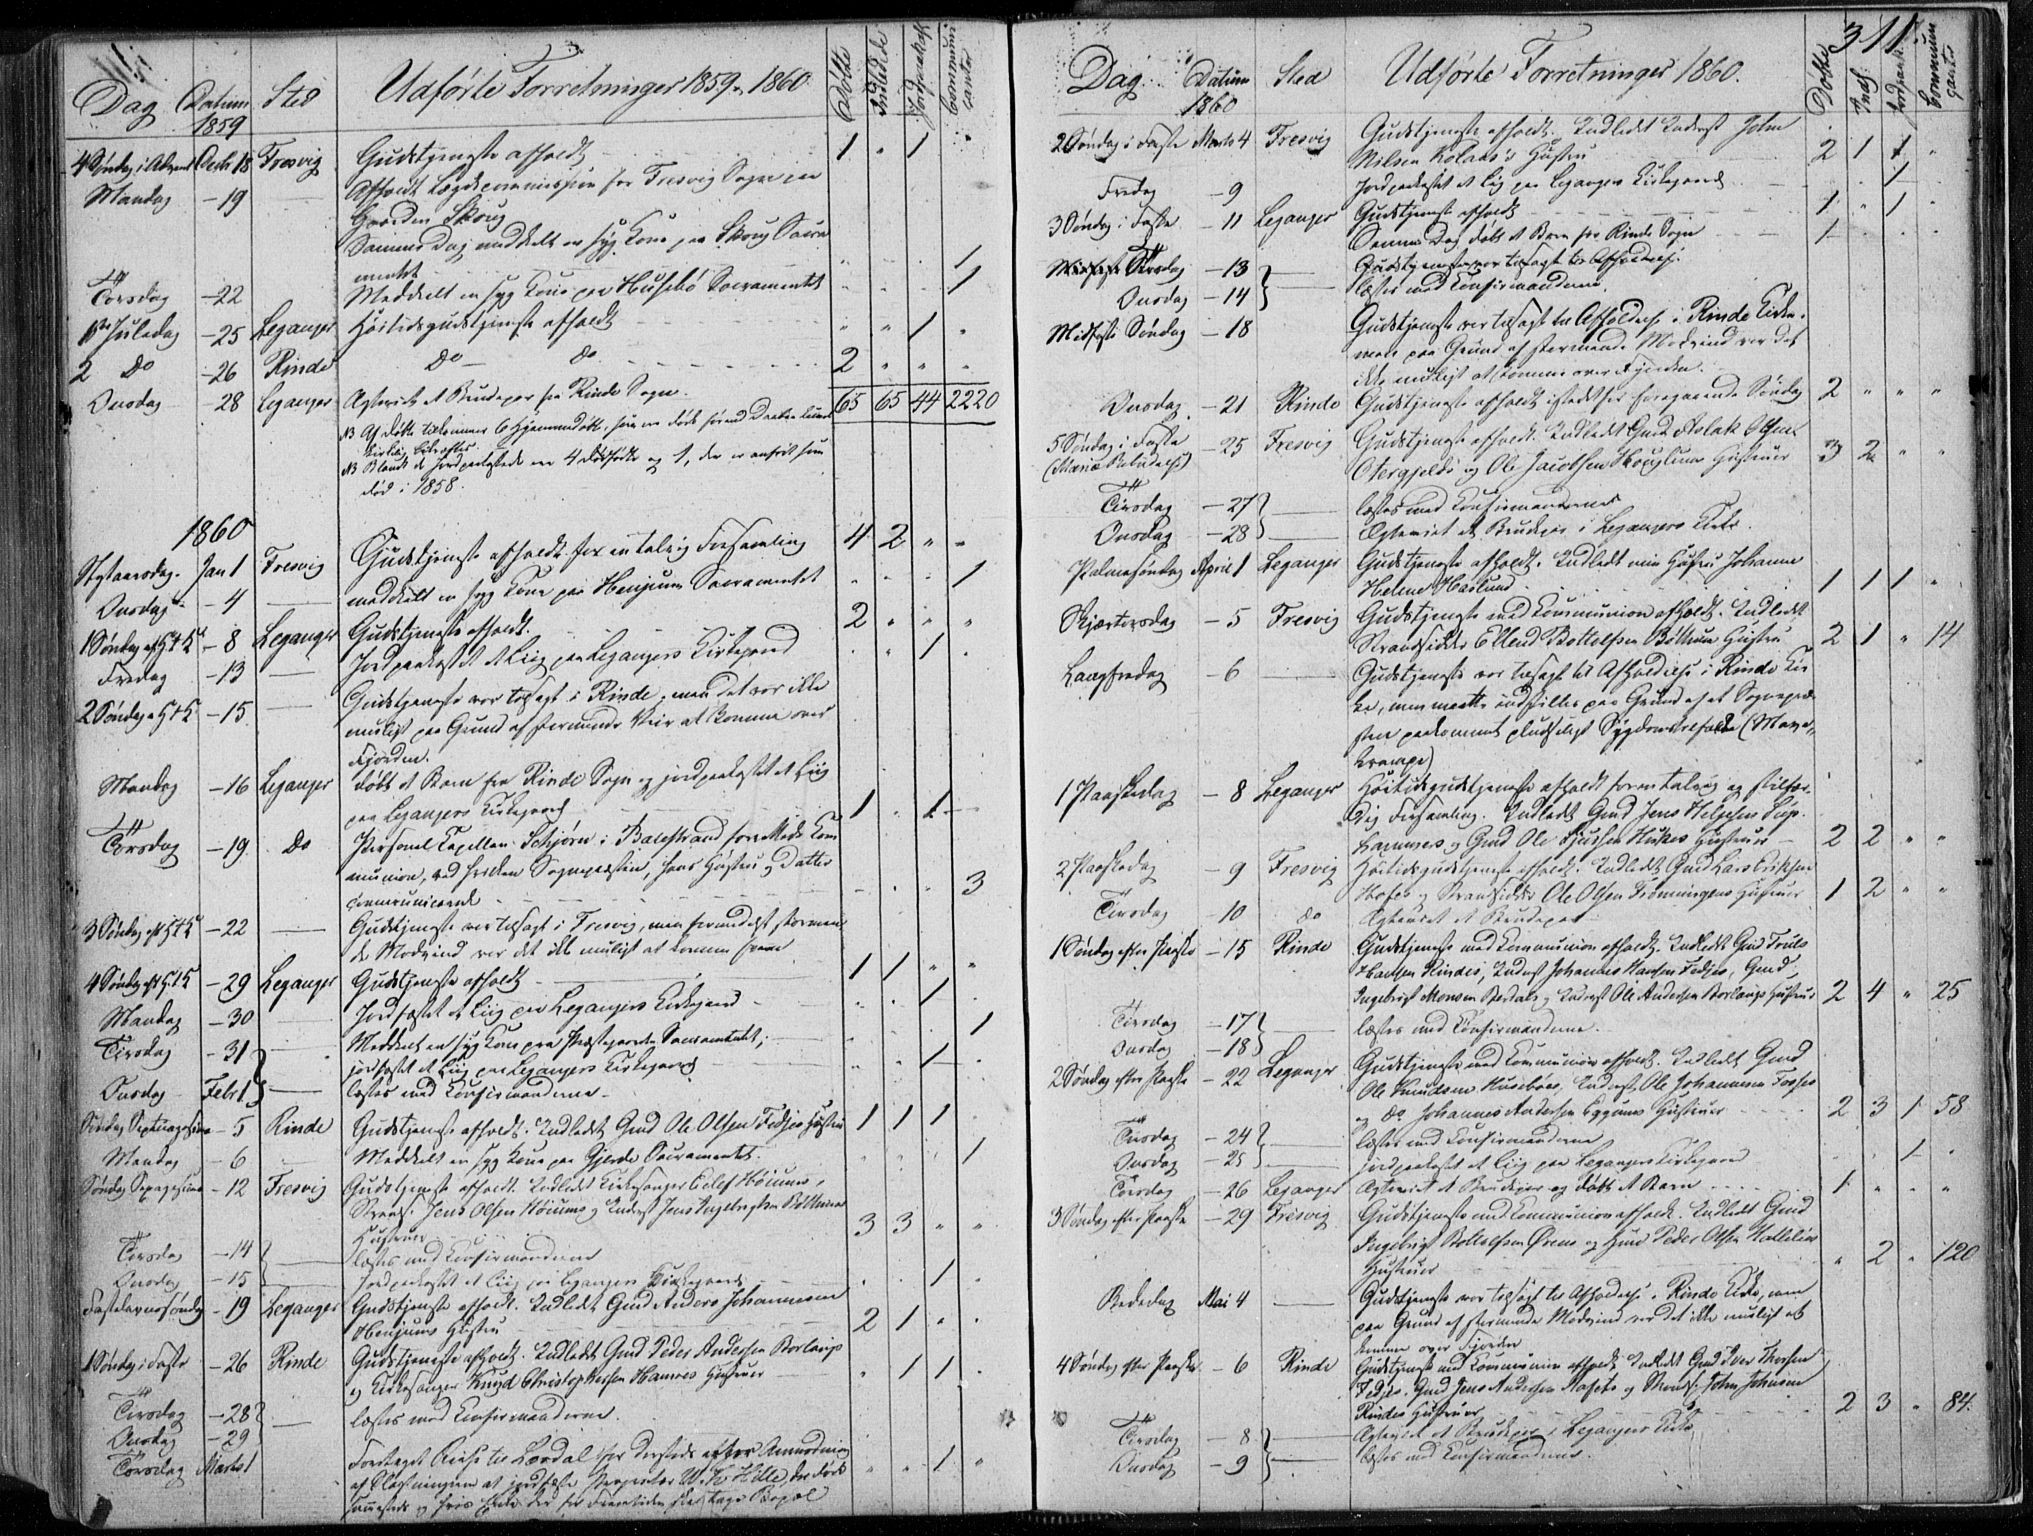 Dag Datum 1859 Sted Udførte Forretninger 1859 - 1860. Døbte Indledede Jordpaakast. Communicanter
4 Søndag i Advent Decb 18 Fresvig Gudstjeneste afholdt 1 " 1 "
Mandag - 19 — Afholdt Lægdscommission for Fresvig Sogn paa
Gaarden Skoug
Samme Dag meddeelt en syg Kone paa Skoug Sacra
mentet 1
Torsdag - 22 Meddeelt en syg Kone paa Husebø Sacramentet 1
1ste Juledag - 25 Leganger Høitidsgudstjeneste afholdt " " 1 "
2 Do - 26 Rinde Do - Do 2 " " "
Onsdag - 28 Leganger Ægteviet et Brudepar fra Rinde Sogn. 65 65 44 2220
NB Af døbte tilkommer 6 Hjemmedøbte, som ere døde førend Daaben kunde
NB Blandt de jordpaakastede ere 4 dødfødte og 1, der er anført som
død i 1858.
1860
Nytaarsdag. Jan 1 Fresvig Gudstjeneste afholdt for en talrig Forsamling 4 2 " "
Onsdag - 4 — meddeelt en syg Kone paa Henjum Sacramentet 1
1 Søndag e H 3 K - 8 Leganger Gudstjeneste afholdt. 2 " " "
Fredag - 13 — Jordpaakastet et Liig paa Legangers Kirkegaard 1
2 Søndag e H 3 K - 15 — Gudstjeneste var tilsagt i Rinde, men det var ikke
muligt paa Grund af stormende Veir at komme over
Fjorden.
Mandag - 16 Leganger døbt et Barn fra Rinde Sogn og jordpaakastet et Liig
paa Legangers Kirkegaard 1 . 1 -
Torsdag - 19 Do Personel Capellan Schjørn i Balestrand forrettede Com
munion, ved hvilken Sognepræsten, hans Hustru og Datter
communicerede 3
3 Søndag eft H 3 K - 22 — Gudstjeneste var tilsagt i Fresvig, men formedelst stormen
de Modvind var det ikke muligt at komme frem
4 Søndag eft H 3 K - 29 Leganger Gudstjeneste afholdt 1 1 " "
Mandag - 30 Jordfæstet et Liig paa Legangers Kirkegaard 1
Tirsdag - 31 Meddeelt en syg Kone paa Præstegaarden Sacramentet; 1
jordfæstet et Liig paa Legangers Kirkegaard 1
Onsdag Febr 1 — læstes med Konfirmanderne.
Søndag Septuagesima - 5 Rinde Gudstjeneste afholdt. Indledet Gmd Ole Olsen Fedjes Hustru 1 1 1
Mandag - 6 Meddeelt en syg Kone paa Gjerde Sacramentet. 1
Søndag Sexagesima - 12 Fresvig Gudstjeneste afholdt. Indledet Kirkesanger Høiums,
Strands. Jens Olsen Høiums og Inderst Jens Ingebrigtsen Bøttums
Hustruer 3 3 " "
Tirsdag - 14 læstes med Konfirmanderne
Onsdag - 15 Jordpaakastet et Liig paa Legangers Kirkegaard 1
Fastelavnssøndag - 19 Leganger Gudstjeneste afholdt. Indledet Gmd Anders Johannesen
Henjums Hustru 2 1
1 Søndag i Faste - 26 Rinde Gudstjeneste afholdt. Indledet Gmd Peder Andersen Borlaugs
og Kirkesanger Knud Christophersen Hamres Hustruer 1 1
Tirsdag - 28 — læstes med Konfirmanderne.
Onsdag - 29
Torsdag Marts 1 Foretaget Reise til Lærdal for dersteds efter Anmodning
af Slægtningerne at jordfæste W. Hille, der døde
sammesteds
3 11
Dag Datum 1860 Sted Udførte Forretninger 1860. Døbte Indl. Jordpaak. Communicants
2 Søndag i Faste Marts 4 Fresvig Gudstjeneste afholdt. Indledet Inderst John
Nilsen Hustru 2 1 1
Fredag - 9 Jordpaakastet et Liig paa Legangers Kirkegaard 1
3 Søndag i Faste - 11 Leganger Gudstjeneste afholdt 1 " 1
Samme Dag døbt et Barn fra Rinde Sogn 1
Tirsdag - 13
Onsdag - 14 læstes med Konfirmanderne.
Midfaste Søndag - 18 Gudstjeneste var tilsagt til Afholdelse i Rinde Kirke,
men paa Grund af stormende Modvind var det
ikke muligt at komme over Fjorden.
Onsdag - 21 Rinde Gudstjeneste afholdt istedetfor foregaaende Søndag 2 " " "
5 Søndag i Faste - 25 Fresvig Gudstjeneste afholdt. Indledet Gmd Aslak Olsen
(Mariæ Bebudelse) og Ole Jacobsen Hustruer 3 2 " "
Tirsdag - 27 læstes med Konfirmanderne
Onsdag - 28 Ægteviet et Brudepar i Legangers Kirke.
Palmesøndag April 1 Leganger Gudstjeneste afholdt. Indledet min Hustru Johanne
Helene Haslund 1 1 1 "
Skjærtorsdag - 5 Fresvig Gudstjeneste med Kommunion afholdt. Indledet
Strandsidder Ellend Bottolfsen Bøttums Hustru 2 1 " 14
Langfredag - 6 Gudstjeneste var tilsagt til Afholdelse i Rinde Kir
ke, men maatte indstilles paa Grund af et Sognepræ
sten paakommet pludseligt Sygdomstilfælde (Mave
krampe)
1 Paaskedag - 8 Leganger Høitidsgudstjeneste afholdt for en talrig og stilfær
dig Forsamling. Indledet Gmd Jens Helgesen
og Gmd Ole Sjursen Hustruer 2 2 " "
2 Paaskedag - 9 Fresvig Høitidsgudstjeneste afholdt. Indledet Gmd Lars Eriksen
og Strandsidder Ole Olsen Hustruer 1 2 " "
Tirsdag - 10 do Ægteviet et Brudepar
1 Søndag efter Paaske - 15 Rinde Gudstjeneste med Kommunion afholdt. Indledet Gmd Truls
Hansen Rindes, Inderst Johannes Hansen Fedjes, Gmd,
Ingebrigt Monsen og Inderst Ole Andersen Borlaugs Hustruer 2 4 " 25
Tirsdag - 17 læstes med Konfirmanderne.
Onsdag - 18
2 Søndag efter Paaske - 22 Leganger Gudstjeneste med Kommunion afholdt. Indledet Gmd
Ole Knudsen Husebøes, Inderst Ole Johannesen
og do Johannes Andersen Eggums Hustruer 2 3 1 58
Tirsdag - 24 læstes med Konfirmanderne
Onsdag - 25 jordpaakastet et Liig paa Legangers Kirkegaard 1
Torsdag - 26 Leganger Ægteviet et Brudepar og døbt et Barn 1 " "
3 Søndag efter Paaske - 29 Fresvig Gudstjeneste med Kommunion afholdt. Indledt Gmd
Ingebrigt Bottolfsen Ørens og Gmd Peder Olsen
Hustruer " 2 " 120
Bededag Mai 4 Gudstjeneste var tilsagt til Afholdelse i Rinde Kirke, men
paa Grund af stormende Modvind var det ikke muligt at
komme over Fjorden
4 Søndag efter Paaske - 6 Rinde Gudstjeneste med Kommunion afholdt. Indledet Gmd Iver Thorsen
Fedjes, Gmd Jens Andersen og Strands. John Johnsen
Rindes Hustruer 2 3 " 84.
Tirsdag - 8 Ægteviet et Brudepar i Legangers Kirke
Onsdag - 9 læstes med Konfirmanderne.